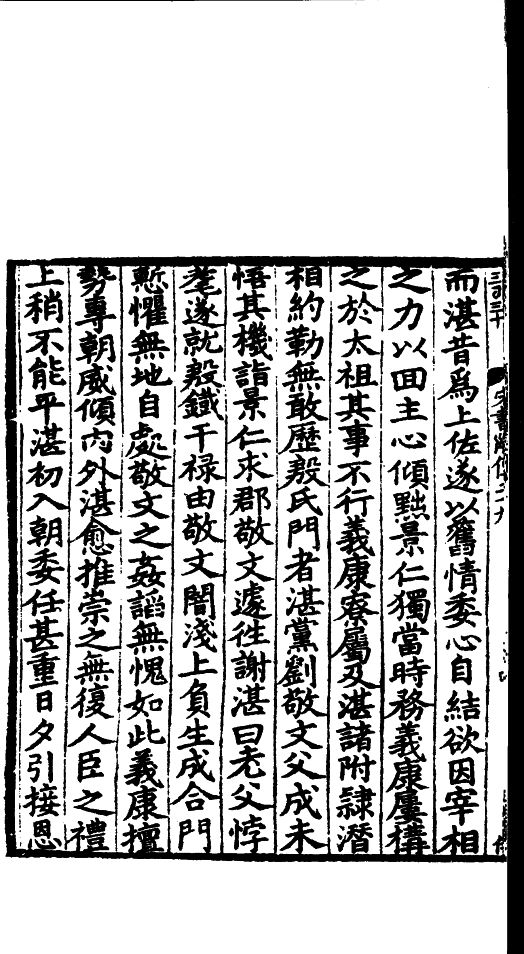 宋書列傳二十九
而湛昔爲上佐遂以舊情委心自結欲因宰相
之力以回主心傾黜景仁獨當時務義康屢構
之於太祖其事不行義康寮屬及湛諸附隷潛
相約勒無敢歷殷氏門者湛黨劉敬文父成未
悟其機詣景仁求郡敬文遽徃謝湛曰老父悖
耄遂就殷鐵干禄由敬文闇淺上負生成合門
慙懼無地自處敬文之姦謟無愧如此義康擅
勢專朝威傾内外湛愈推崇之無復人臣之禮
上稍不能平湛初入朝委任甚重日夕引接恩